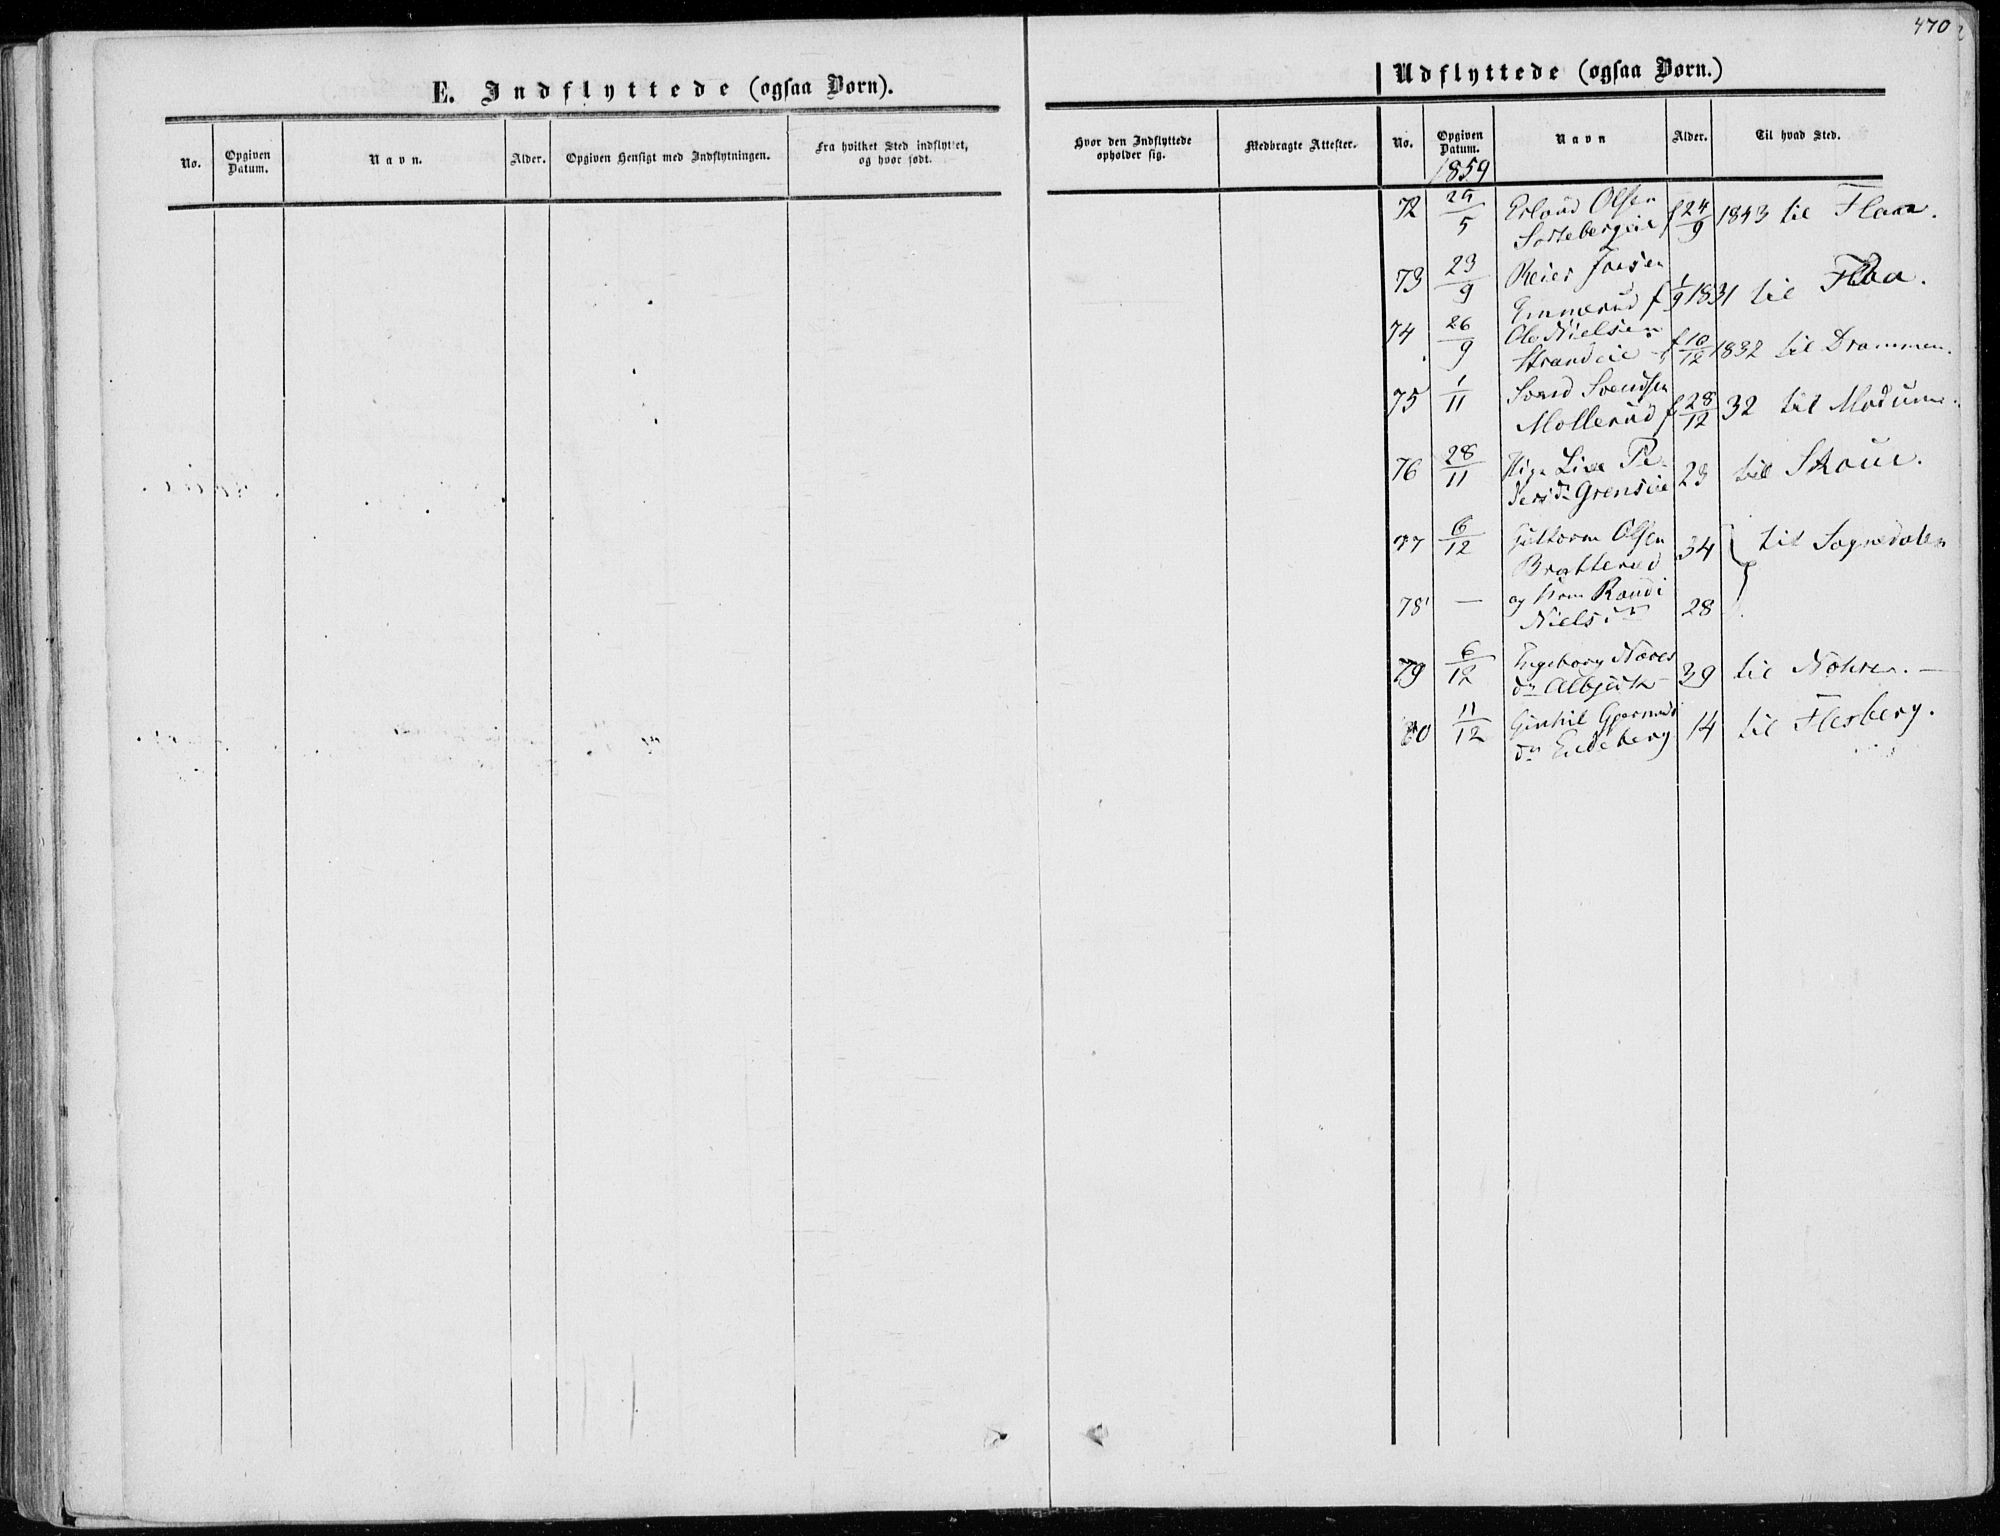 470
E. Indflyttede (ogsaa Børn).
No. Opgiven Datum. Navn. Alder. Opgiven Hensigt med Indflytningen. Fra hvilket Sted indflyttet, og hvor født.
Udflyttede (ogsaa Børn.)
Hvor den Indflyttede opholder sig. Medbragte Attester. No. Opgiven Datum. Navn Alder. Til hvad Sted.
1859
72 29/5 Erland Olsen
f 24/9 1843 til Flaa.
73 23/9 Reier
Emmerud f 1/9 1831 til Flaa.
74 26/9 Ole Nielsen
Strandeie f 10/12 1832 til Drammen.
75 1/11 Svend Svendsen
Mollerud f 28/12 32 til Modum.
76 28/11 Pige Live Pe-
dersdr Grenseie 23 til Skoue.
77 6/12 Guttorm Olsen
Bratterud 34 til Sognedalen
78 — og Kone Randi
Nielsdr 28
79 6/12 Ingeborg
dr Albjerk 39 til Nohre. —
80 11/12 Gunhil
dr Eideberg 14 til Flesberg.